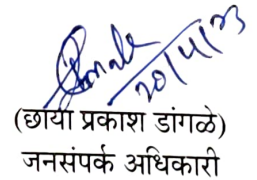 20/4/23
(छाया प्रकाश डांगळे)
जनसंपर्क अधिकारी